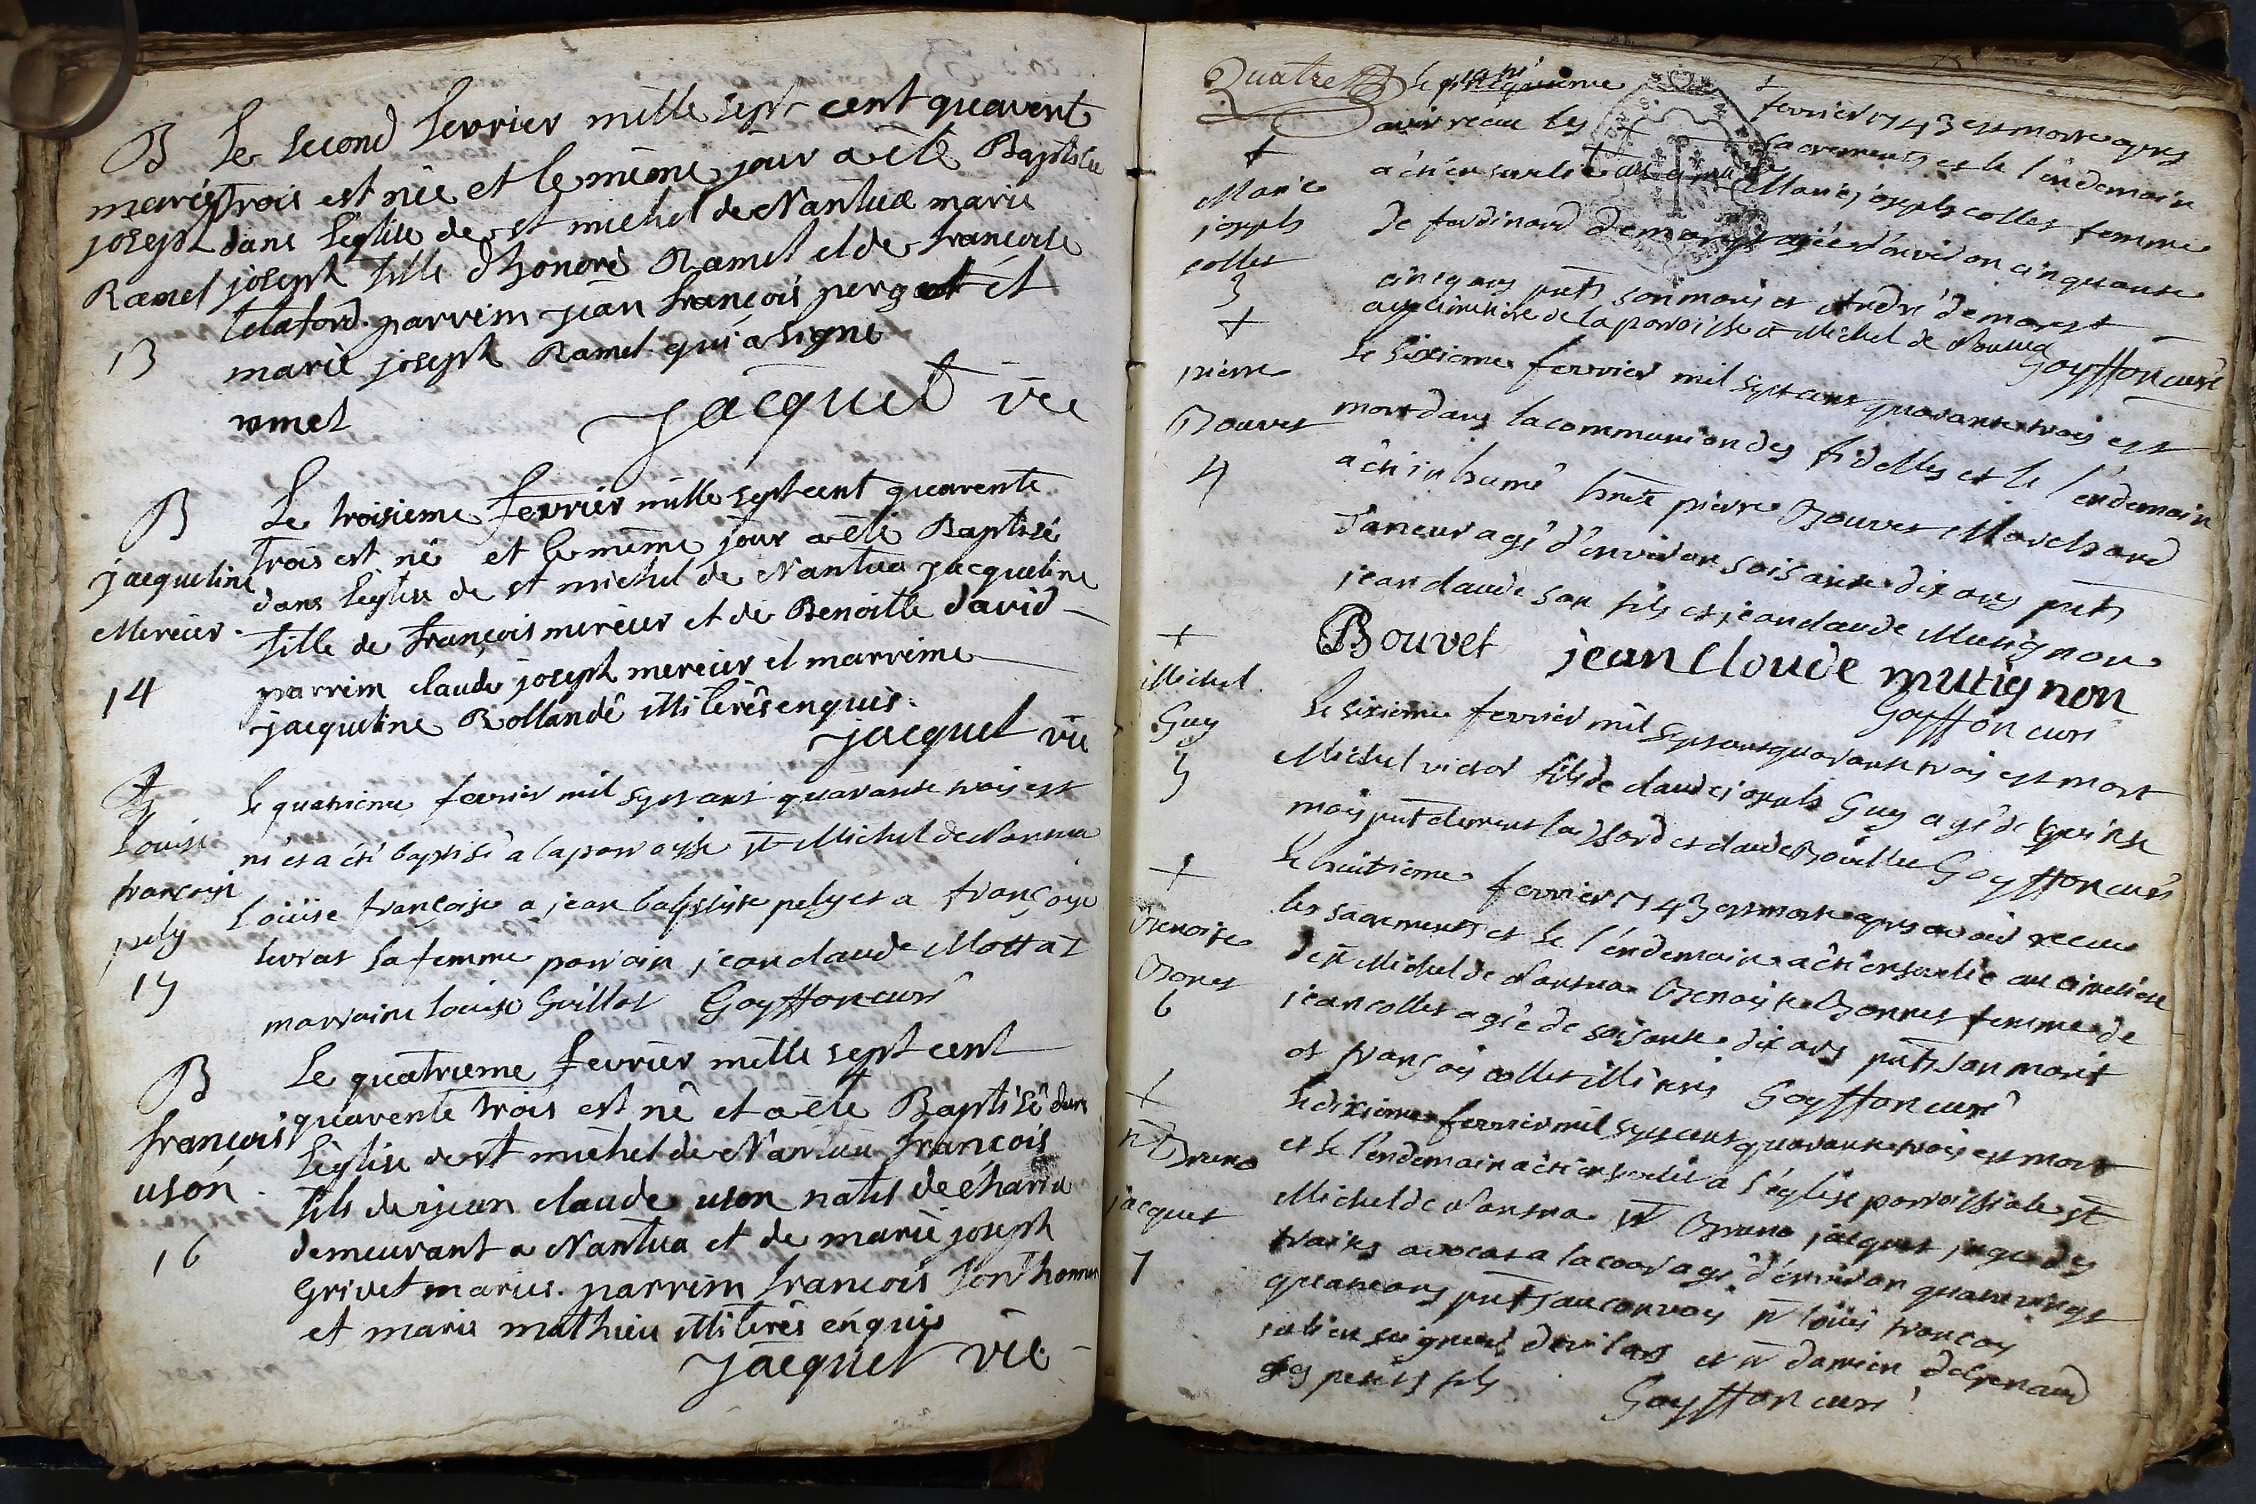 B Le second fevrier mille sept cent quarente
marie trois est née et le même jour a été Baptisée
joseph dans l'eglise de st michel de Nantua marie
Ramel joseph fille d'honoré Ramel et de francoise
13
parrim jean françois et
marie joseph Ramel qui a signé
ramel
jacquet vic
B Le troisieme fevrier mille sept cent quarente
trois est né et le même jour a été Baptisé
jacqueline dans l'eglise de st michel de Nantua jacqueline
Mercier fille de françois mercier et de Benoitte david
14 parrim claude joseph mercier et marrime
jacqueline Rollande illiterés enquis.
jacquet vic
B Le quatrieme fevrier mil sept cent quarante trois est
Louise né et a été baptisé a la parroisse st Michel de Nantua
francoise Loüise françoise a jean baptiste pely et a françoise
pely sa femme parrain jean claude Mottaz
15 marraine Louise Guillot Goyffon curé
B Le quatrieme fevrier mille sept cent
francois quarente trois est né et a été Baptisé dans
uson l'eglise de st michel de Nantua francois
16 fils de jean claude uson natif de
demeurant a Nantua et de marie joseph
Grivet mariés. parrim francois
et marie mathieu illiterés enquis
jacquet vic
Quatre
Le fevrier 1743 est morte apres
+ avoir receu les sacrements et le l'endemain
Marie a été ensevelie au Marie joseph collet femme
joseph de ferdinand demarest agée d'environ cinquante
collet cinq ans pnts son mari et André demarest
3 au cimetiere de la parroisse st Michel de Nantua
Goyffon curé
+ Le sixieme fevrier mil sept cent quarante trois est
pierre mort dans la communion des fidelles et le l'endemain
Bouvet a été inhumé hnete pierre Bouvet Marchand
4 Taneur agé d'environ soisante dix ans pnts
jean claude son fils et jean claude Mutignon
Bouvet jean Cloude mutignon
Goyffon curé
+ Michel Guy
5
Le sixieme fevrier mil sept cent quarante trois est mort
Michel victor fils de claude joseph Guy agé de quinse
mois pnt clement et claude Goyffon curé
+ Le huitieme fevrier 1743 est morte apres avoir receu
Benoite les sacrements et le l'endemain a été ensevelie au cimetiere
Bonet de st Michel de Nantua Benoite Bonnet femme de
6 jean collet agée de soisante dix ans pnts son mari
et françois collet illiteris Goyffon curé
+ Le dixieme fevrier mil sept cent quarante trois est mort
Bruno et le l'endemain a été enseveli a l'eglise parroissiale st
jacquet Michel de Nantua Bruno jacquet juge des
7 traites avocat a la cour agé d'environ quatre vingt
quatre ans pnts au convoy Loüis françois
seigneur de et damien
ses petits fils Goyffon curé